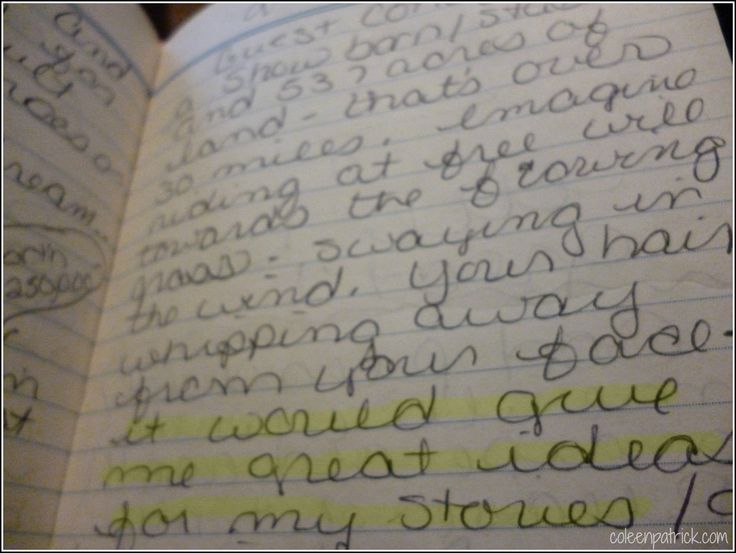 and
you
ream.
250,000
a
Guest
a Show barn/
and 537 acres of
land - that's over
30 miles. Imagine
riding at free will
towards the
grass - swaying in
the wind. Your hair
whipping away
from your face.
it would give
me great ideas
for my stories /
coleenpatrick.com